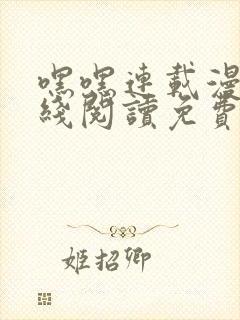 嘿嘿連載漫
綫閱讀免費
姬招卿